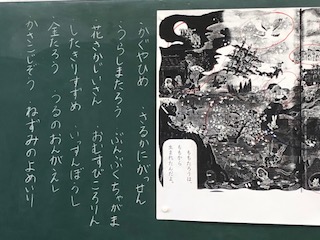 ・かぐやひめ　さるかにがっせん
・うらしまたろう　ぶんぶくちゃがま
花さかじいさん　おむすびころりん
したきりすずめ　いっすんぼうし
・金たろう　つるのおんがえし
かさこじぞう　ねずみのよめいり
ももたろうは、
ももから
生まれたんだよ。